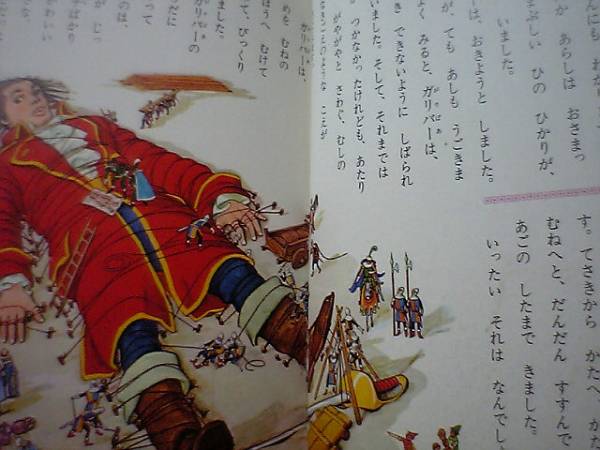 んにも わた
か あらしは おさまっ
まぶしい ひの ひかりが、
いました。
ーは、おきようと しました。
が、ても あしも うごきま
よく みると、ガリバーは、
き できないように しばられ
いました。そして、それまでは
つかなかったけれども、あたり
がやがやと さわぐ、むしの
なきごえのような こえが
す。てさきから かたへ、かた
むねへと、だんだん すすんで
あごの したまで きました。
いったい それは なんでし
ガリバーは、
めを むねの
ほうへ むけて
て、びっくり
ました。
ガリバーの